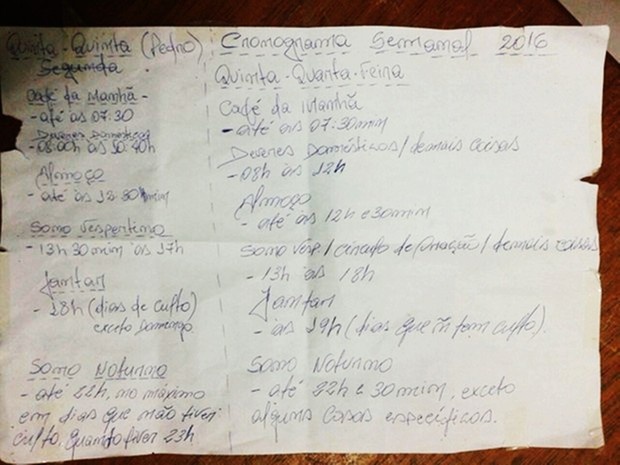 Quinta-Quinta (Pedro)
Segunda
Café da Manhã -
- até às 07:30
Deveres Domésticos
- 08:00h às 10:40h
Almoço
- até às 12:30 mim
Sono Vespertino
- 13h 30mim às 17h
Jantar
- 18h (dias de culto)
exceto Domingo
Sono Noturno
- até 22h, no máximo
em dias que não tiver
culto, quando tiver 23h
Cronograma Semanal 2016
Quinta-Quarta-Feira
Café da Manhã
- até às 07:30mim
Deveres Domésticos / demais coisas
- 08h às 12h
Almoço
- até às 12h e 30mim
Sono Vesp / Círculo de Oração / demais coisas
- 13h às 18h
Jantar
- às 19h (dias que ñ tem culto).
Sono Noturno
- até 22h e 30mim, exceto
alguns casos específicos.